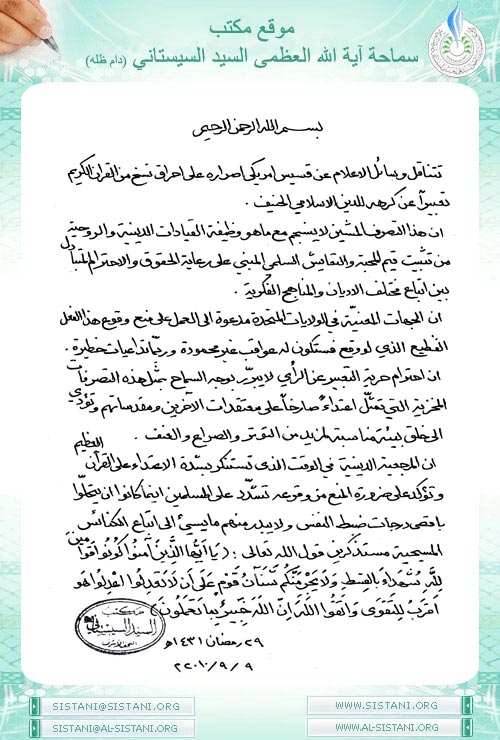 موقع مكتب
سماحة آية الله العظمى السيد السيستاني (دام ظله)
بسم الله الرحمن الرحيم
تتناقل وسائل الاعلام عن قسيس امريكي اصراره على احراق نسخ من القرآن الكريم
تعبيراً عن كرهه للدين الاسلامي الحنيف .
ان هذا التصرف المشين لا ينسجم مع ما هو وظيفة القيادات الدينية والروحية
من تثبيت قيم المحبة والتعايش السلمي المبني على رعاية الحقوق والاحترام المتبادل
بين اتباع مختلف الاديان والمناهج الفكرية .
ان الجهات المعنيّة في الولايات المتحدة مدعوة الى العمل على منع وقوع هذا الفعل
الفظيع الذي لو وقع فستكون له عواقب غير محمودة وربّما تداعيات خطيرة .
ان احترام حرية التعبير عن الرأي لا يبرّر بوجه السماح بمثل هذه التصرفات
المخزية التي تمثّل اعتداءً صارخاً على معتقدات الآخرين ومقدساتهم وتؤدي
الى خلق بيئة مناسبة لمزيد من التوتر والصراع والعنف .
ان المرجعية الدينية في الوقت الذي تستنكر بشدّة الاعتداء على القرآن العظيم
وتؤكد على ضرورة المنع من وقوعه تشدّد على المسلمين اينما كانوا ان يتحلّوا
باقصى درجات ضبط النفس ولا يبدر منهم ما يسيئ الى اتباع الكنائس
المسيحية مستذكرين قول الله تعالى : (يَا أَيُّهَا الَّذِينَ آمَنُوا كُونُوا قَوَّامِينَ
لِلَّهِ شُهَدَاءَ بِالْقِسْطِ وَلَا يَجْرِمَنَّكُمْ شَنَآنُ قَوْمٍ عَلَى أَنْ لَا تَعْدِلُوا اعْدِلُوا هُوَ
أَقْرَبُ لِلتَّقْوَى وَاتَّقُوا اللَّهَ إِنَّ اللَّهَ خَبِيرٌ بِمَا تَعْمَلُونَ)
مكتب
السيد السيستاني
النجف الاشرف
٢٩ رمضان ١٤٣١هـ
٩ / ٩ / ٢٠١٠
SISTANI@SISTANI.ORG
WWW.SISTANI.ORG
SISTANI@AL-SISTANI.ORG
WWW.AL-SISTANI.ORG